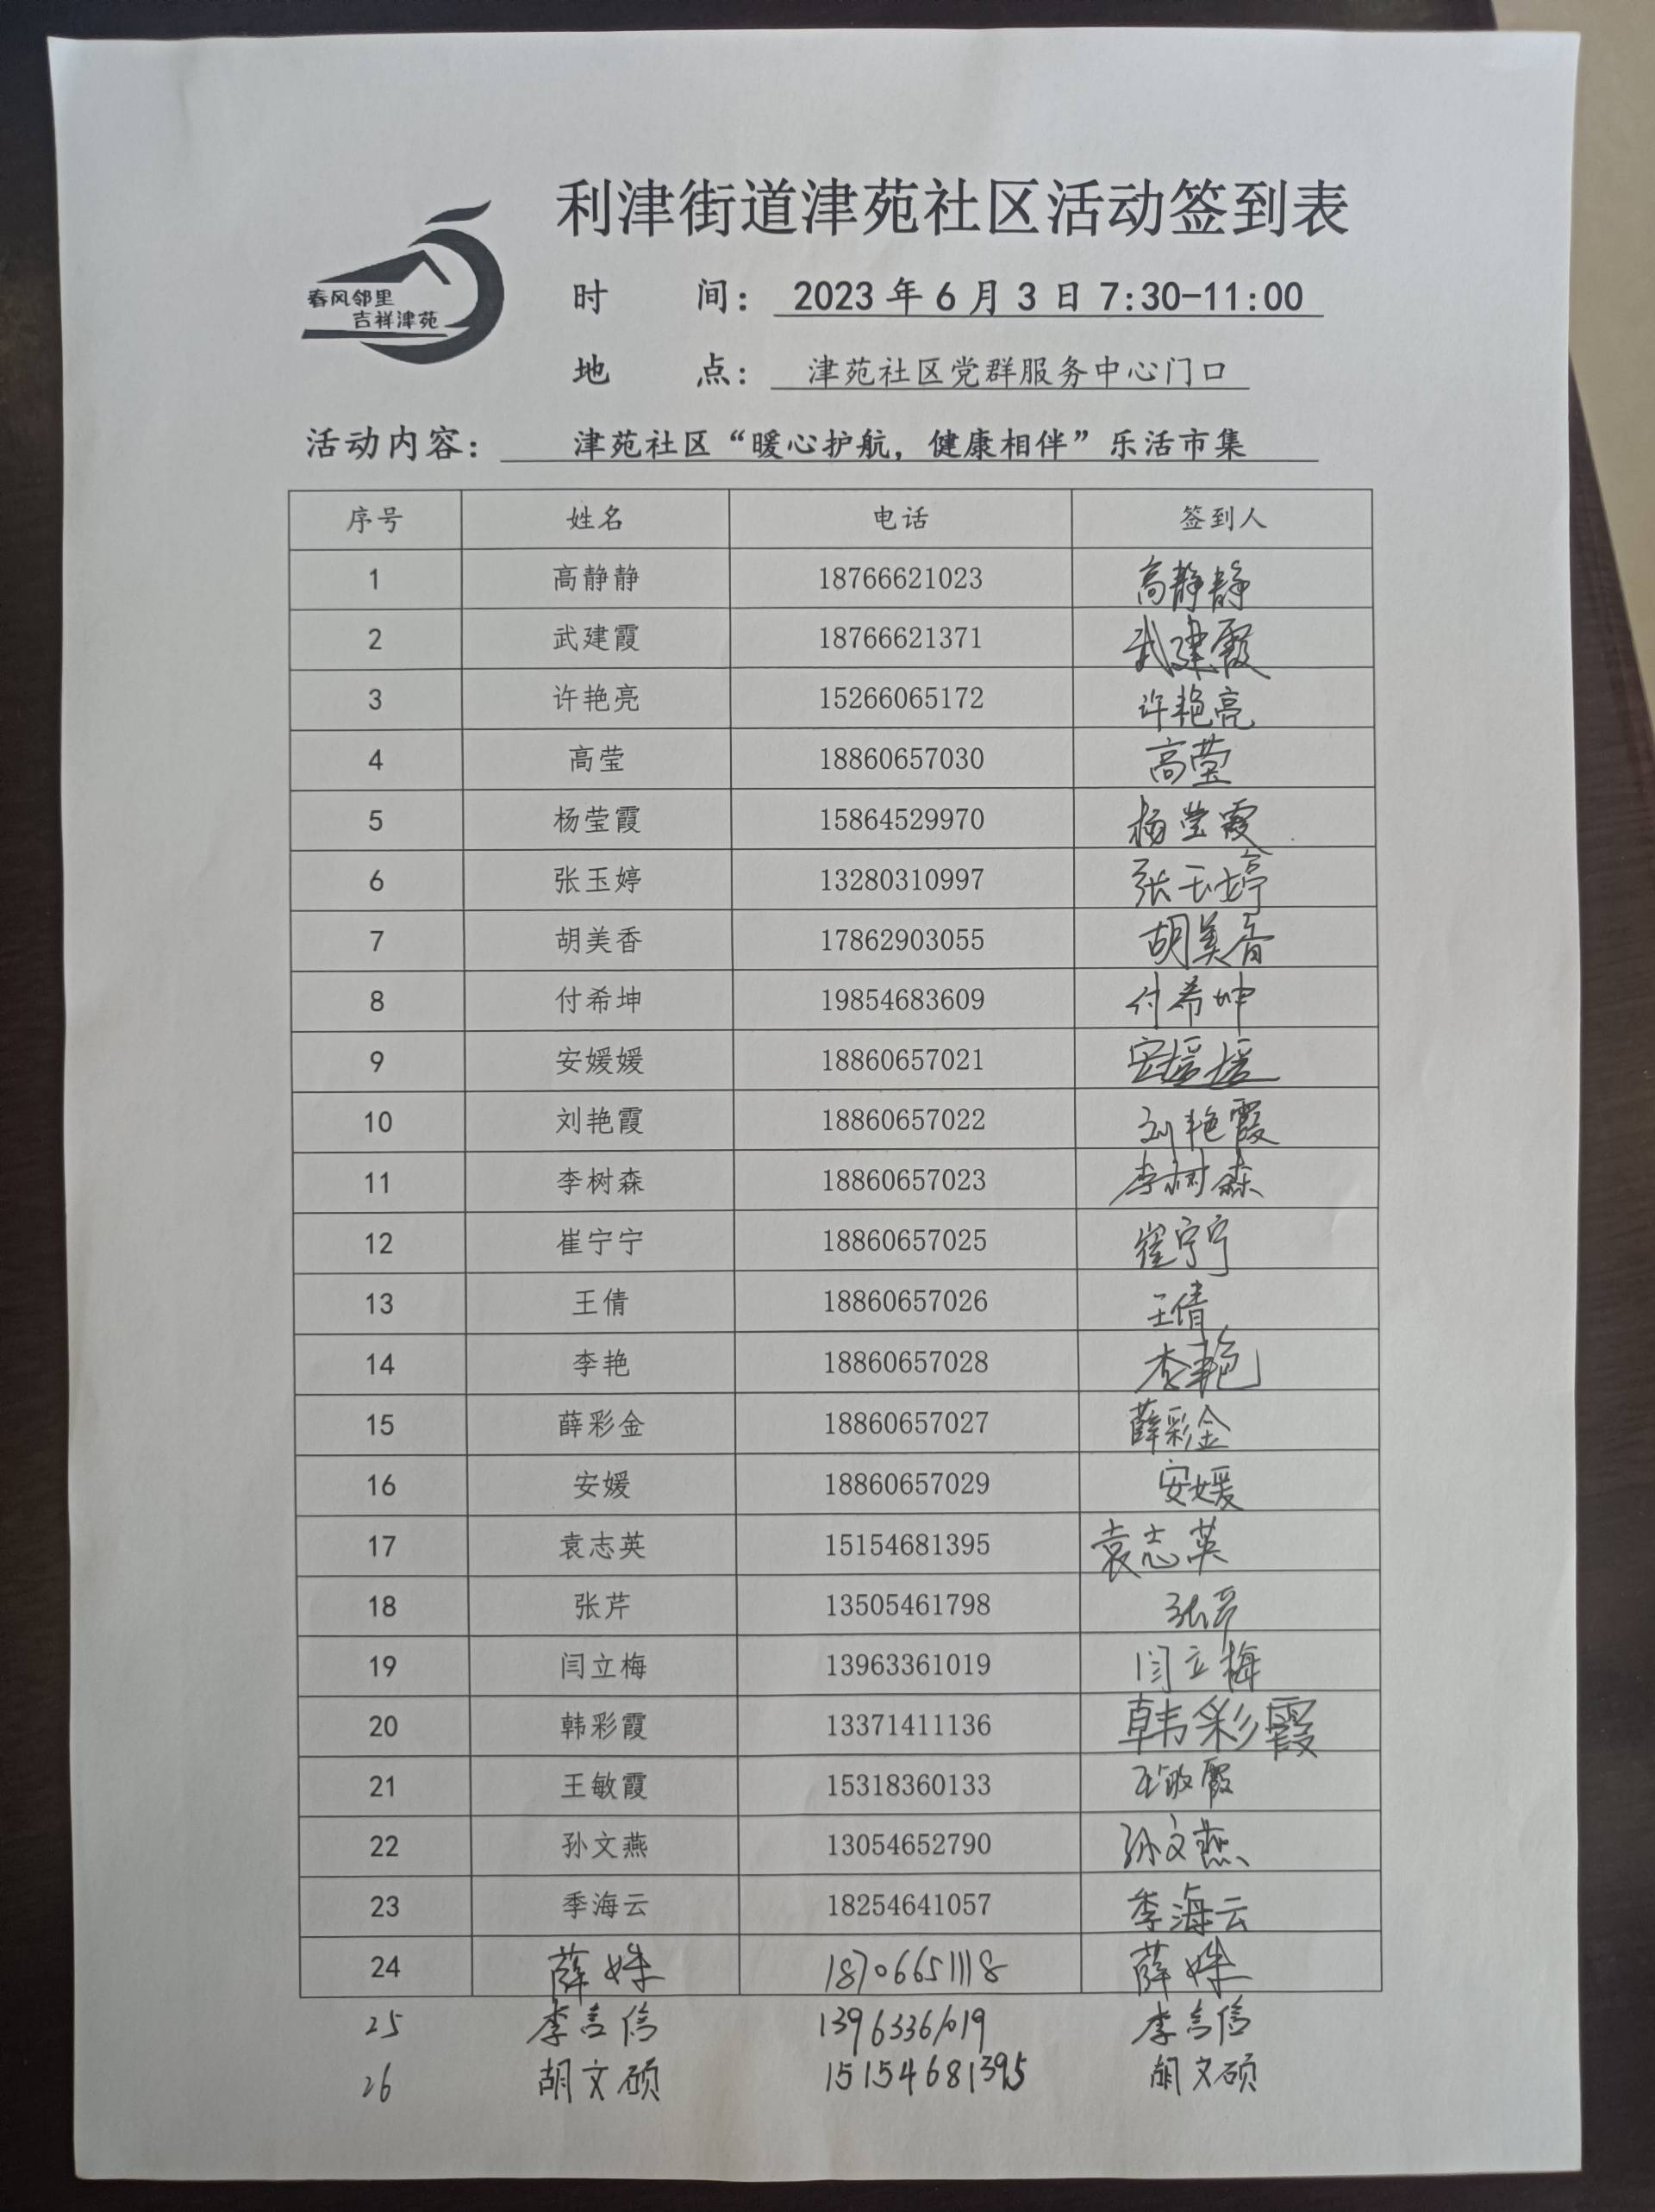 利津街道津苑社区活动签到表
春风邻里
吉祥津苑
时 间： 2023 年 6 月 3 日 7:30-11:00
地 点： 津苑社区党群服务中心门口
活动内容： 津苑社区“暖心护航，健康相伴”乐活市集
序号 姓名 电话 签到人
1 高静静 18766621023 高静静
2 武建霞 18766621371 武建霞
3 许艳亮 15266065172 许艳亮
4 高莹 18860657030 高莹
5 杨莹霞 15864529970 杨莹霞
6 张玉婷 13280310997 张玉婷
7 胡美香 17862903055 胡美香
8 付希坤 19854683609 付希坤
9 安媛媛 18860657021 安媛媛
10 刘艳霞 18860657022 刘艳霞
11 李树森 18860657023 李树森
12 崔宁宁 18860657025 崔宁宁
13 王倩 18860657026 王倩
14 李艳 18860657028 李艳
15 薛彩金 18860657027 薛彩金
16 安媛 18860657029 安媛
17 袁志英 15154681395 袁志英
18 张芹 13505461798 张芹
19 闫立梅 13963361019 闫立梅
20 韩彩霞 13371411136 韩彩霞
21 王敏霞 15318360133 王敏霞
22 孙文燕 13054652790 孙文燕
23 季海云 18254641057 季海云
24 薛姝 18706651118 薛姝
25 李言信 13963361019 李言信
26 胡文硕 15154681395 胡文硕